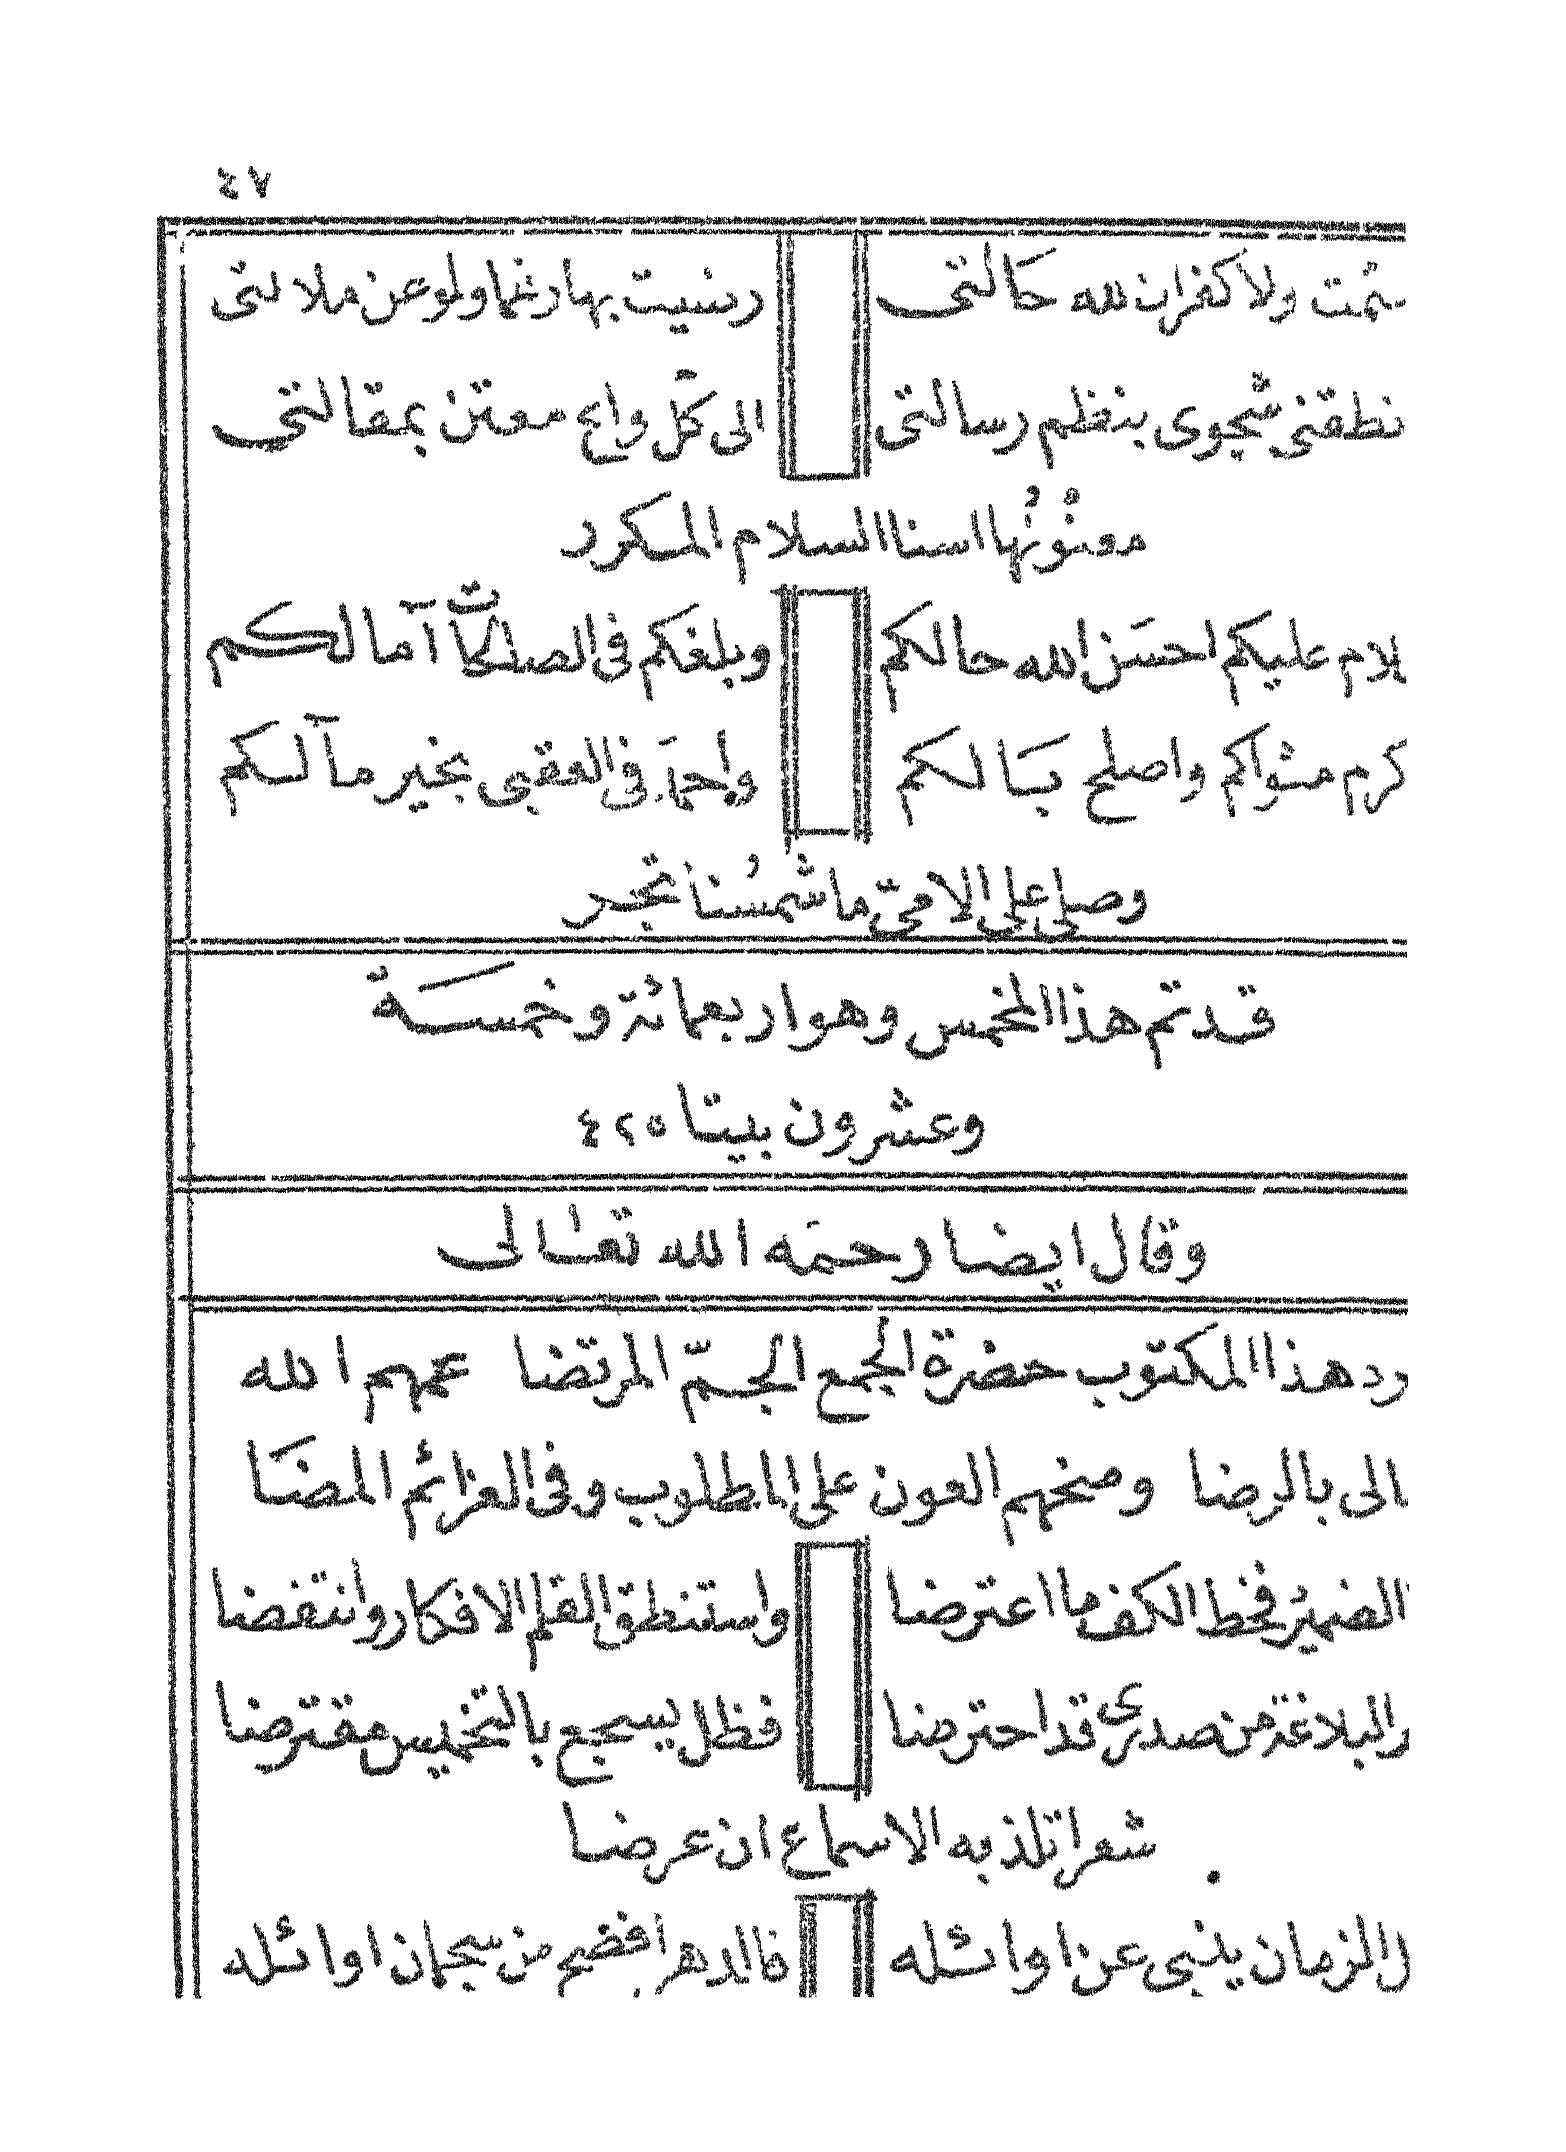 ٤٧
ئمت ولا كفران لله حالتي رضيت بها رغما ولو عن ملالتي
نطقني شجوى بنظم رسالتي الى كل واع معتن بمقالتي
معنونها اسنا السلام المكرر
لام عليكم احسن الله حالكم وبلغكم في الصلحات آمالكم
كرم مثواكم واصلح بالكم في العقبى بخير مآلكم
وصلى على الامي ما شمسنا تجر
قد تم هذا المخمس وهو اربعمائة وخمسة
وعشرون بيتا ٤٢٥
وقال ايضا رحمه الله تعالى
رد هذا المكتوب حضرة الجمع الجم المرتضا عمهم الله
الى بالرضا ومنحهم العون على المطلوب وفي العزائم المضا
الضمير فخط الكف ما اعترضا واستنطق القلم الافكار وانتفضا
البلاغة من صدري قد احترضا فظل يسجع بالتخميس مفترضا
شعرا تلذ به الاسماع ان عرضا
ل الزمان ينبي عن اوائله فالدهر افصح من سحبان اوائله